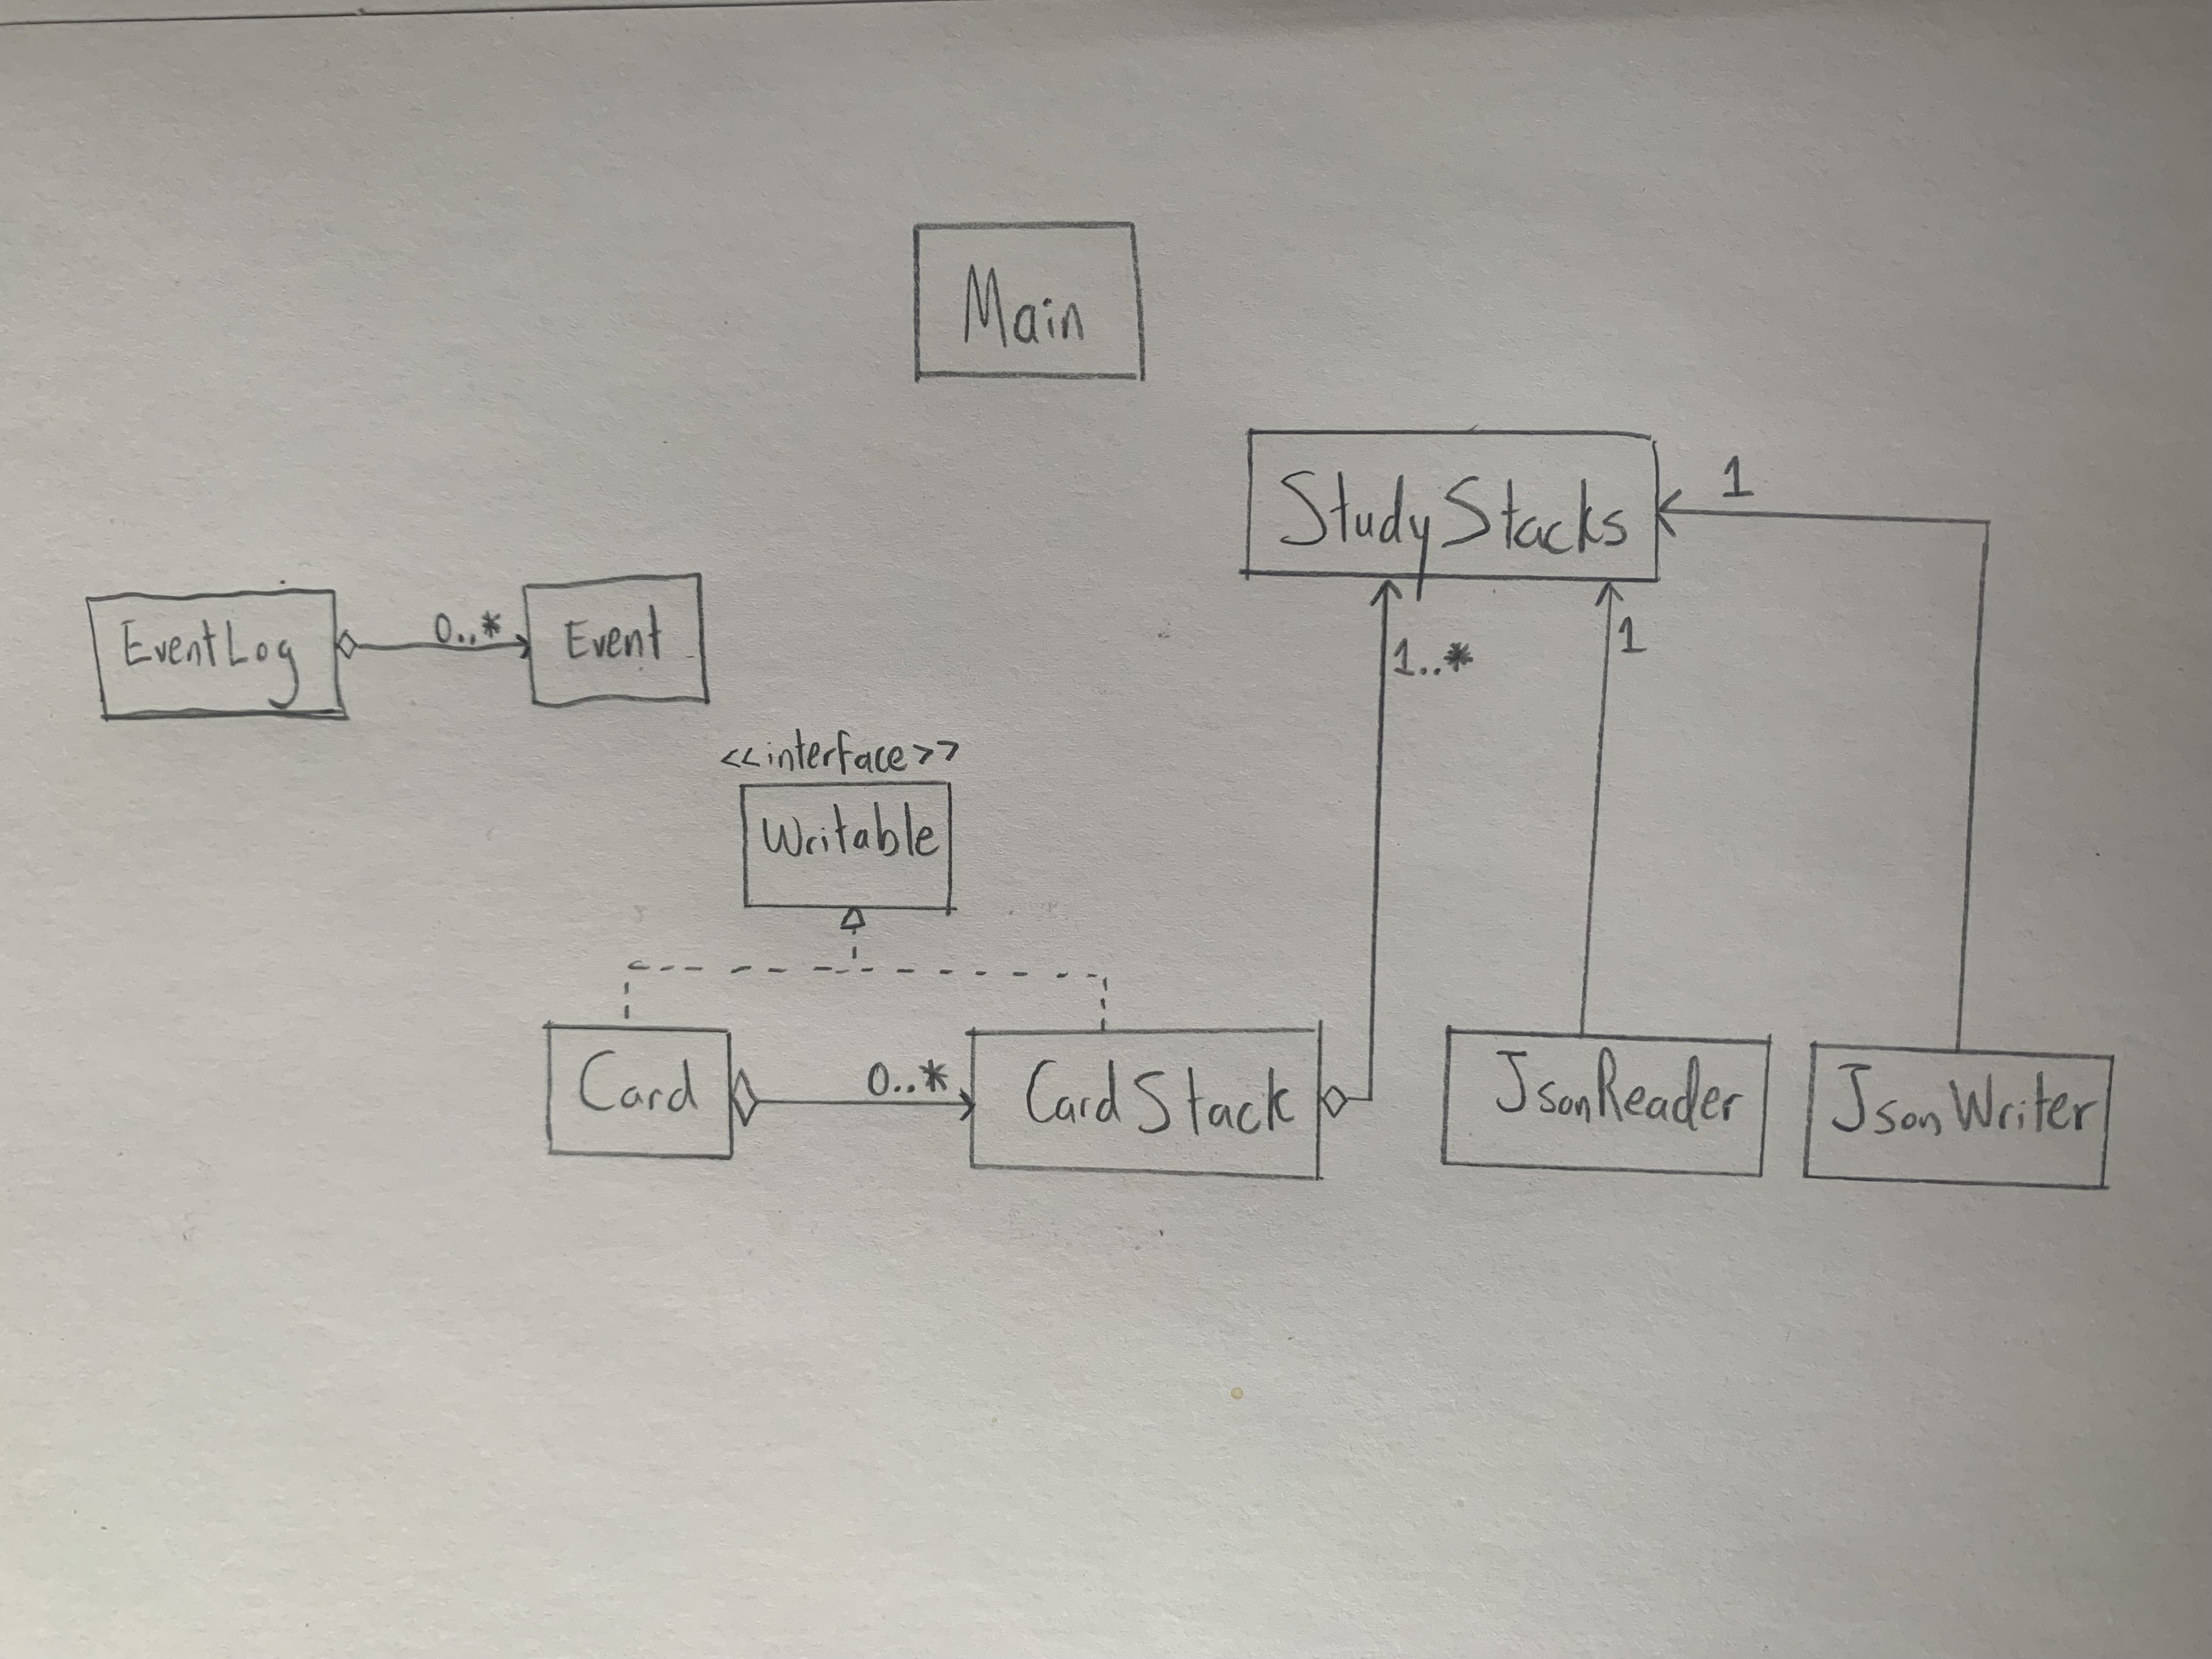 Main
StudyStacks
1
EventLog
0..*
Event
1..*
1
<<interface>>
Writable
Card
0..*
CardStack
JsonReader
JsonWriter